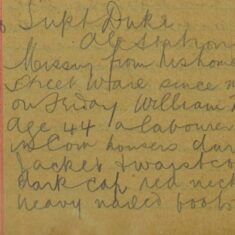 Supt Duke
All Stations
Missing from his home
Street Ware since
on Friday William
age 44 a labourer
in Cord trousers dark
Jacket & waistco
dark cap red neck
heavy nailed boots